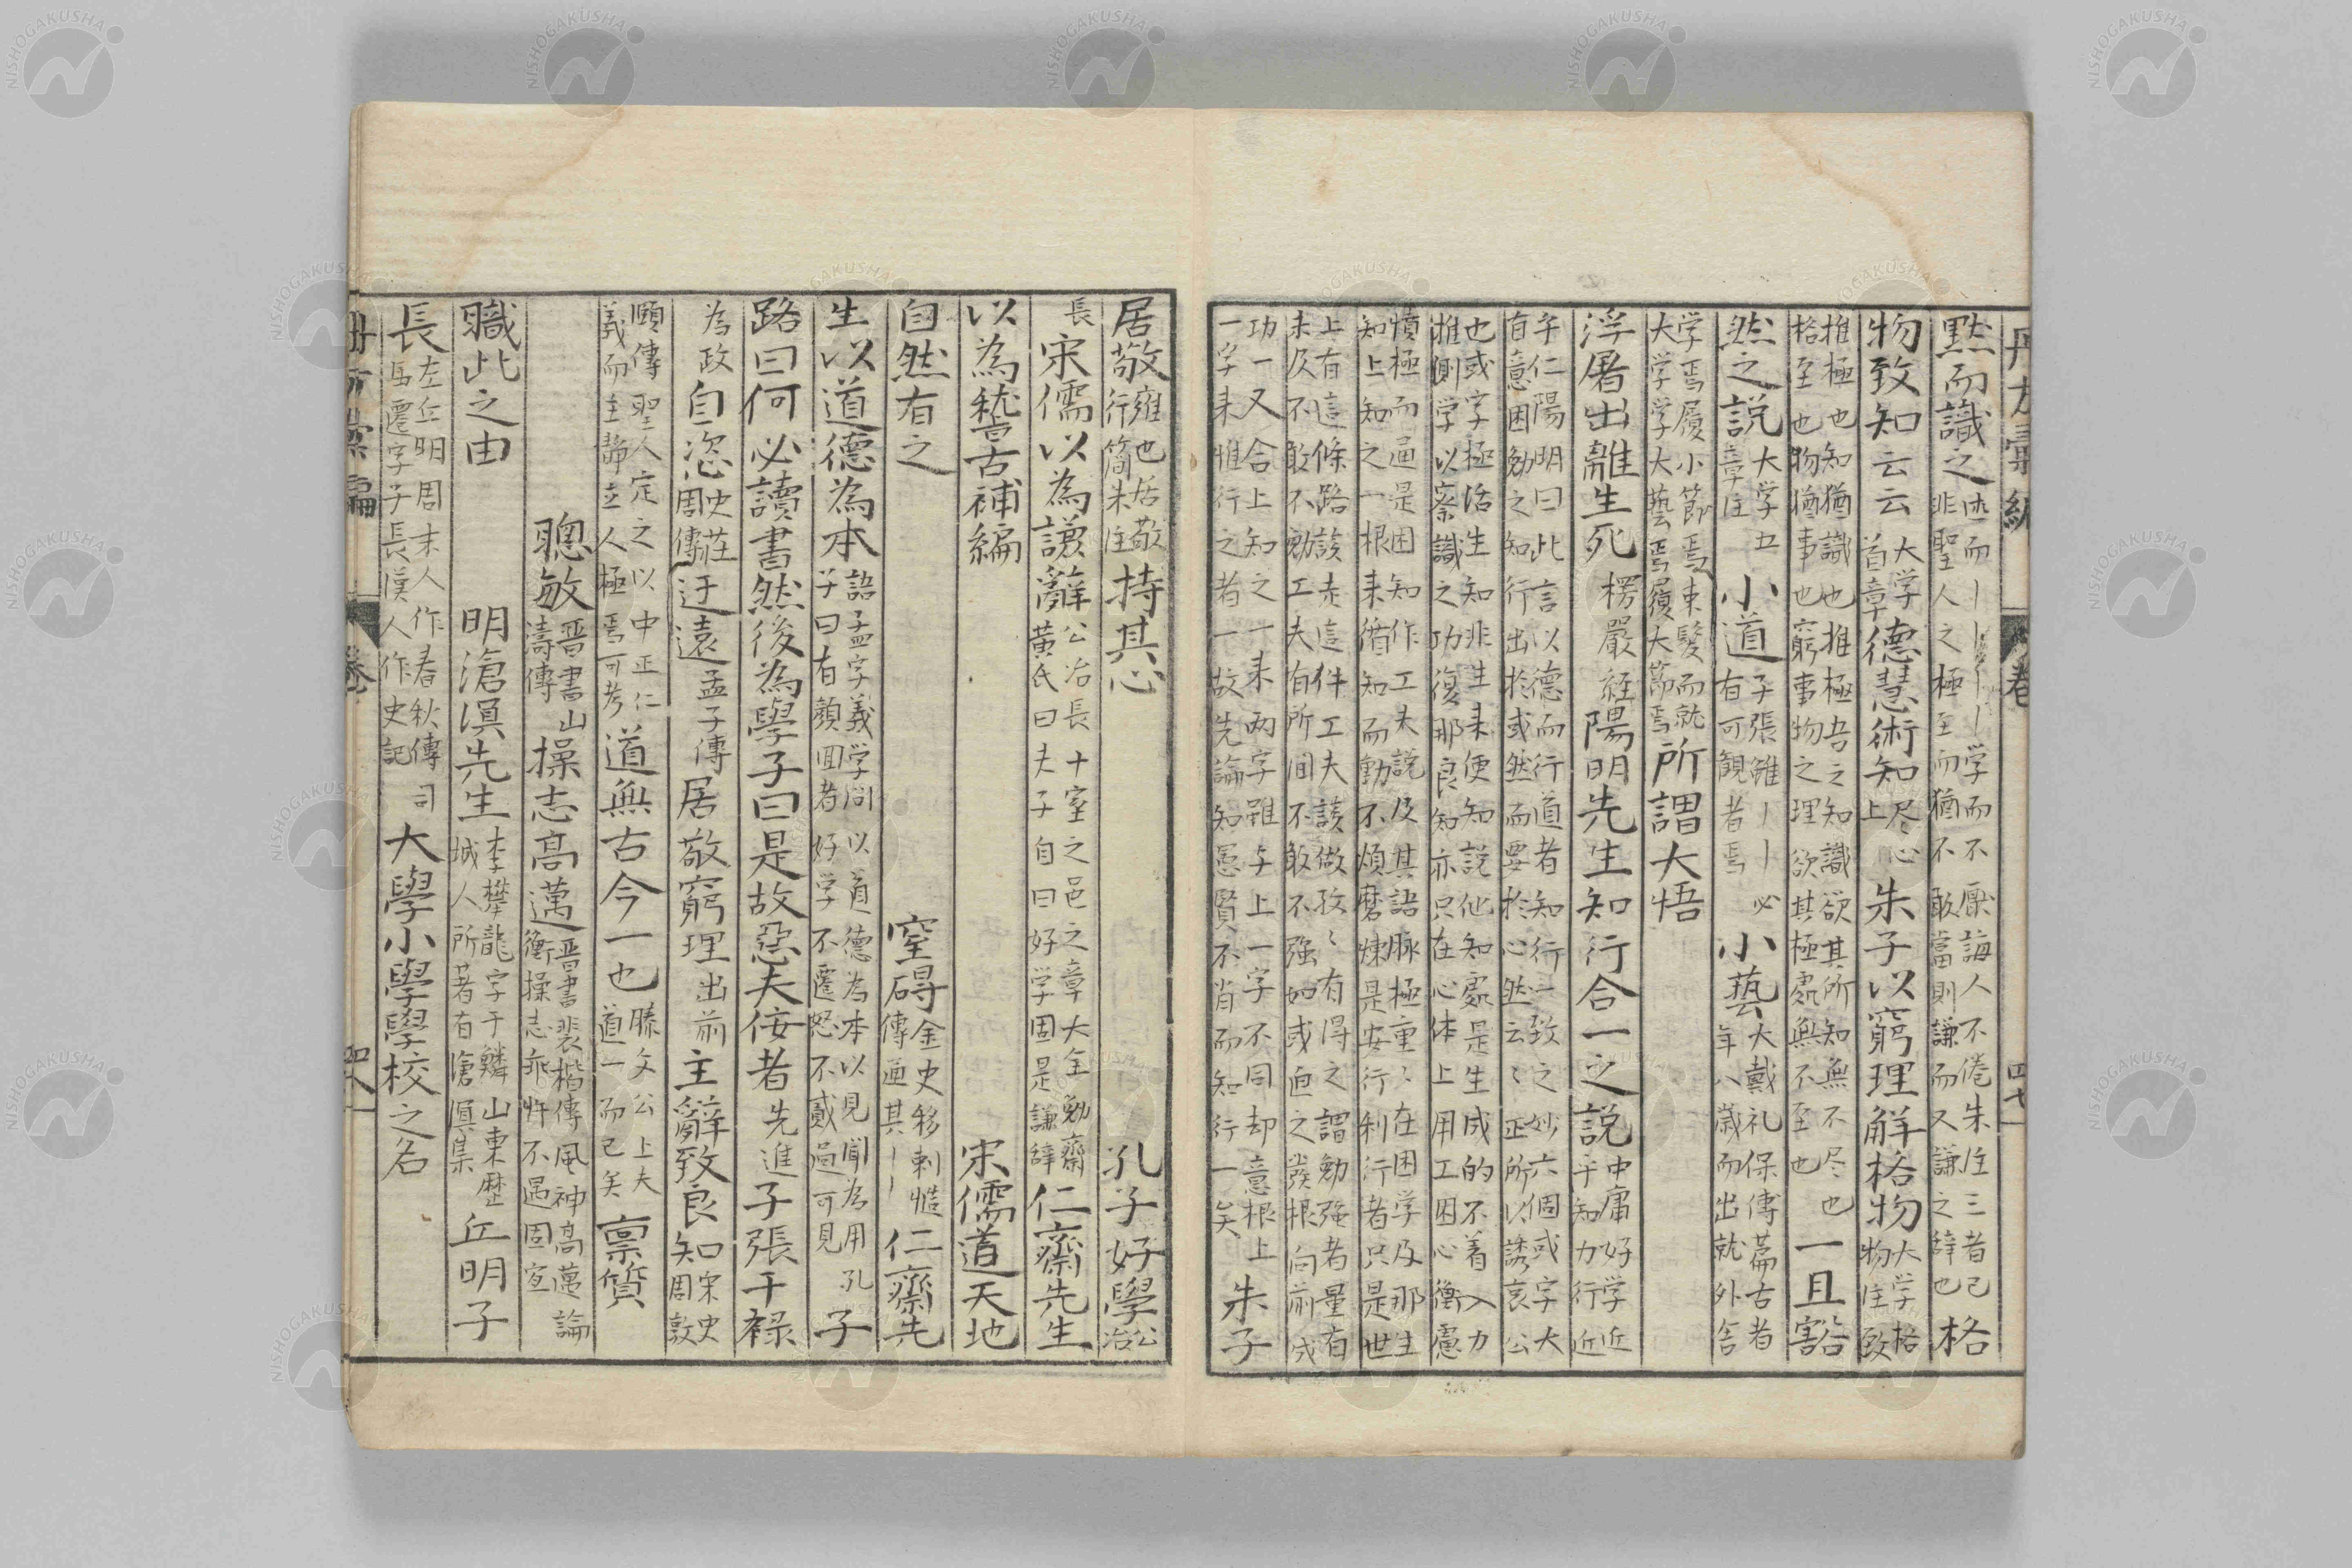 黙而識之 述而〡〡〡〡学而不厭誨人不倦朱注三者已非聖人之極至而猶不敢當則謙而又謙之辞也 格
物致知云云 大学首章 德慧術知 尽心上 朱子以窮理解格物 大学格物注致
推極也知猶識也推極吾之知識欲其所知無不尽也格至也物猶事也窮事物之理欲其極處無不至也 一旦豁
然之說 大学五章注 小道 子張雖〡〡必有可觀者焉 小藝 大戴礼保傅篇古者年八歳而出就外舎
学焉履小節焉束髮而就大学学大藝焉履大節焉 所謂大悟
浮屠出離生死 楞嚴経 陽明先生知行合一之說 中庸好学近乎知力行近
乎仁陽明曰此言以德而行道者知行一致之妙六個或字大有意困勉之知行出於或然而要於心然云云正所以誘哀公
也或字極活生知非生来便知説他知處是生成的不着入力推測学以察識之功復那良知亦只在心体上用工困心衡慮
憤極而通是困知作工夫説及其語脉極重重在困学及那生知上知之一根来循知而動不煩磨煉是安行利行者只是世
上有這條路該走這件工夫該做孜孜有得之謂勉强者量有未及不敢不勉工夫有所間不敢不强如或迫之發根向前成
功一又合上知之一来两字雖与上一字不同却意根上一字来惟行之者一故先論知愚賢不肖而知行一矣 朱子
居敬 雍也居敬行简朱注 持其心 孔子好學 公冶
長 宋儒以為謙辭 公冶長十室之邑之章大全勉齋黄氏曰夫子自曰好学固是謙辞 仁齋先生
以為稽古補編 宋儒道天地
自然有之 窒碍 金史移剌慥傳通其〡〡 仁齋先
生以道德為本 語孟字義学問以道德為本以見聞為用孔子曰有顏回者好学不遷怒不貳過可見 子
路曰何必讀書然後為學子曰是故惡夫佞者 先進 子張干禄
為政 自恣 史荘周傳 迂遠 孟子傳 居敬窮理 出前 主辭致良知 宋史周敦
頤傳聖人定之以中正仁義而主靜立人極焉可考 道無古今一也 滕文公上夫道一而已矣 禀質
聰敏 晋書山濤傳 操志高邁 晋書裴楷傳風神高邁論衡操志乖忤不遇固宜
職此之由 明滄溟先生 李攀龍字于鱗山東歴城人所著有滄溟集 丘明子
長 左丘明周末人作春秋傳司馬遷字子長漢人作史記 大學小學學校之名